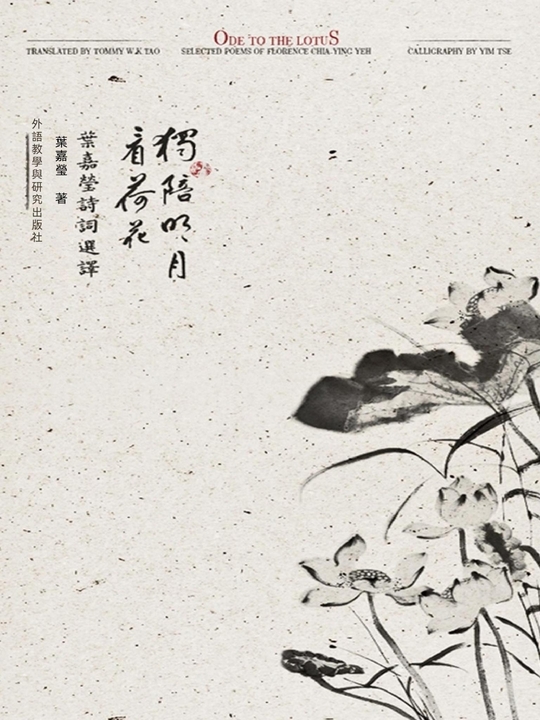 ODE TO THE LOTUS
TRANSLATED BY TOMMY W.K. TAO
SELECTED POEMS OF FLORENCE CHIA-YING YEH
CALLIGRAPHY BY YIM TSE
獨陪明月
看荷花
葉嘉瑩詩詞選譯
葉嘉瑩 著
外語教學與研究出版社